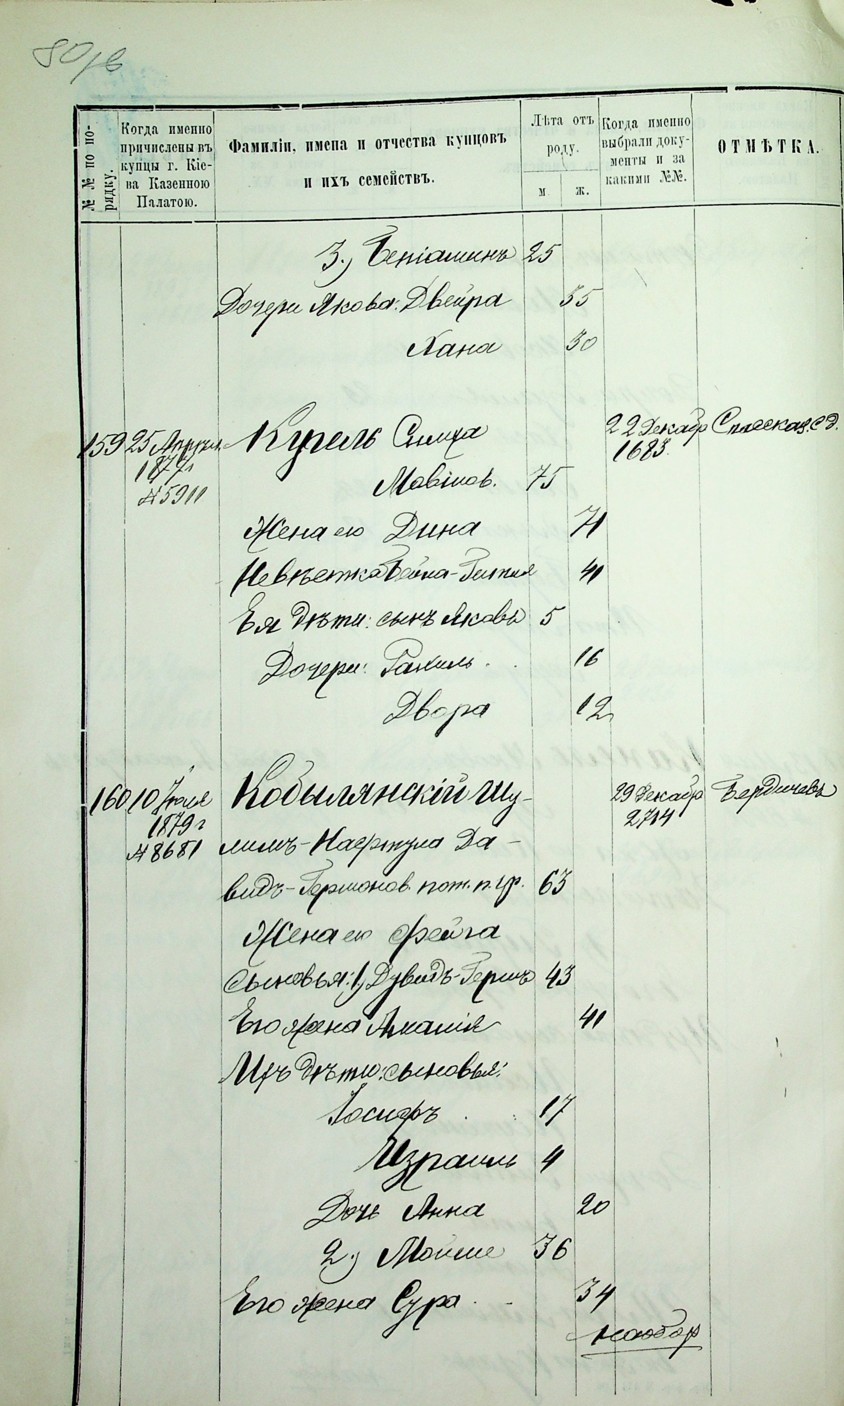 80/в
№№ по порядку.
Когда именно причислены въ купцы г. Кіева Казенною Палатою.
Фамиліи, имена и отчества купцовъ и ихъ семействъ.
Лѣта отъ роду.
м.
ж.
Когда именно выбрали документы и за какими №№.
ОТМѢТКА.
3.) Беніаминъ 25
Дочери Якова: Двейра 35
Хана 30
159 25 Апрѣл. Кугель Симха 22 Декабр
1877 г 1683.
№ 5911 Мовшов. 75
Жена его Дина 71
Невѣстка Бейла- 41
Ея дѣти: сынъ Яковъ 5
Дочери: Рахиль 16
Двора 12
160 10 Іюля Кобылянскій Шу- 29 Декабр Бердичевъ
1879 г 2714
№ 8681 лимъ- Да-
видъ-Гершонов. пот. п. гр. 63
Жена его Фейга
Сыновья: 1) Дувидъ-Гершъ 43
Его жена Амалія 41
Ихъ дѣти: сыновья:
Іосифъ 17
Израиль 4
Дочь Анна 20
2.) Мойше 36
Его жена Сура 34
наобор